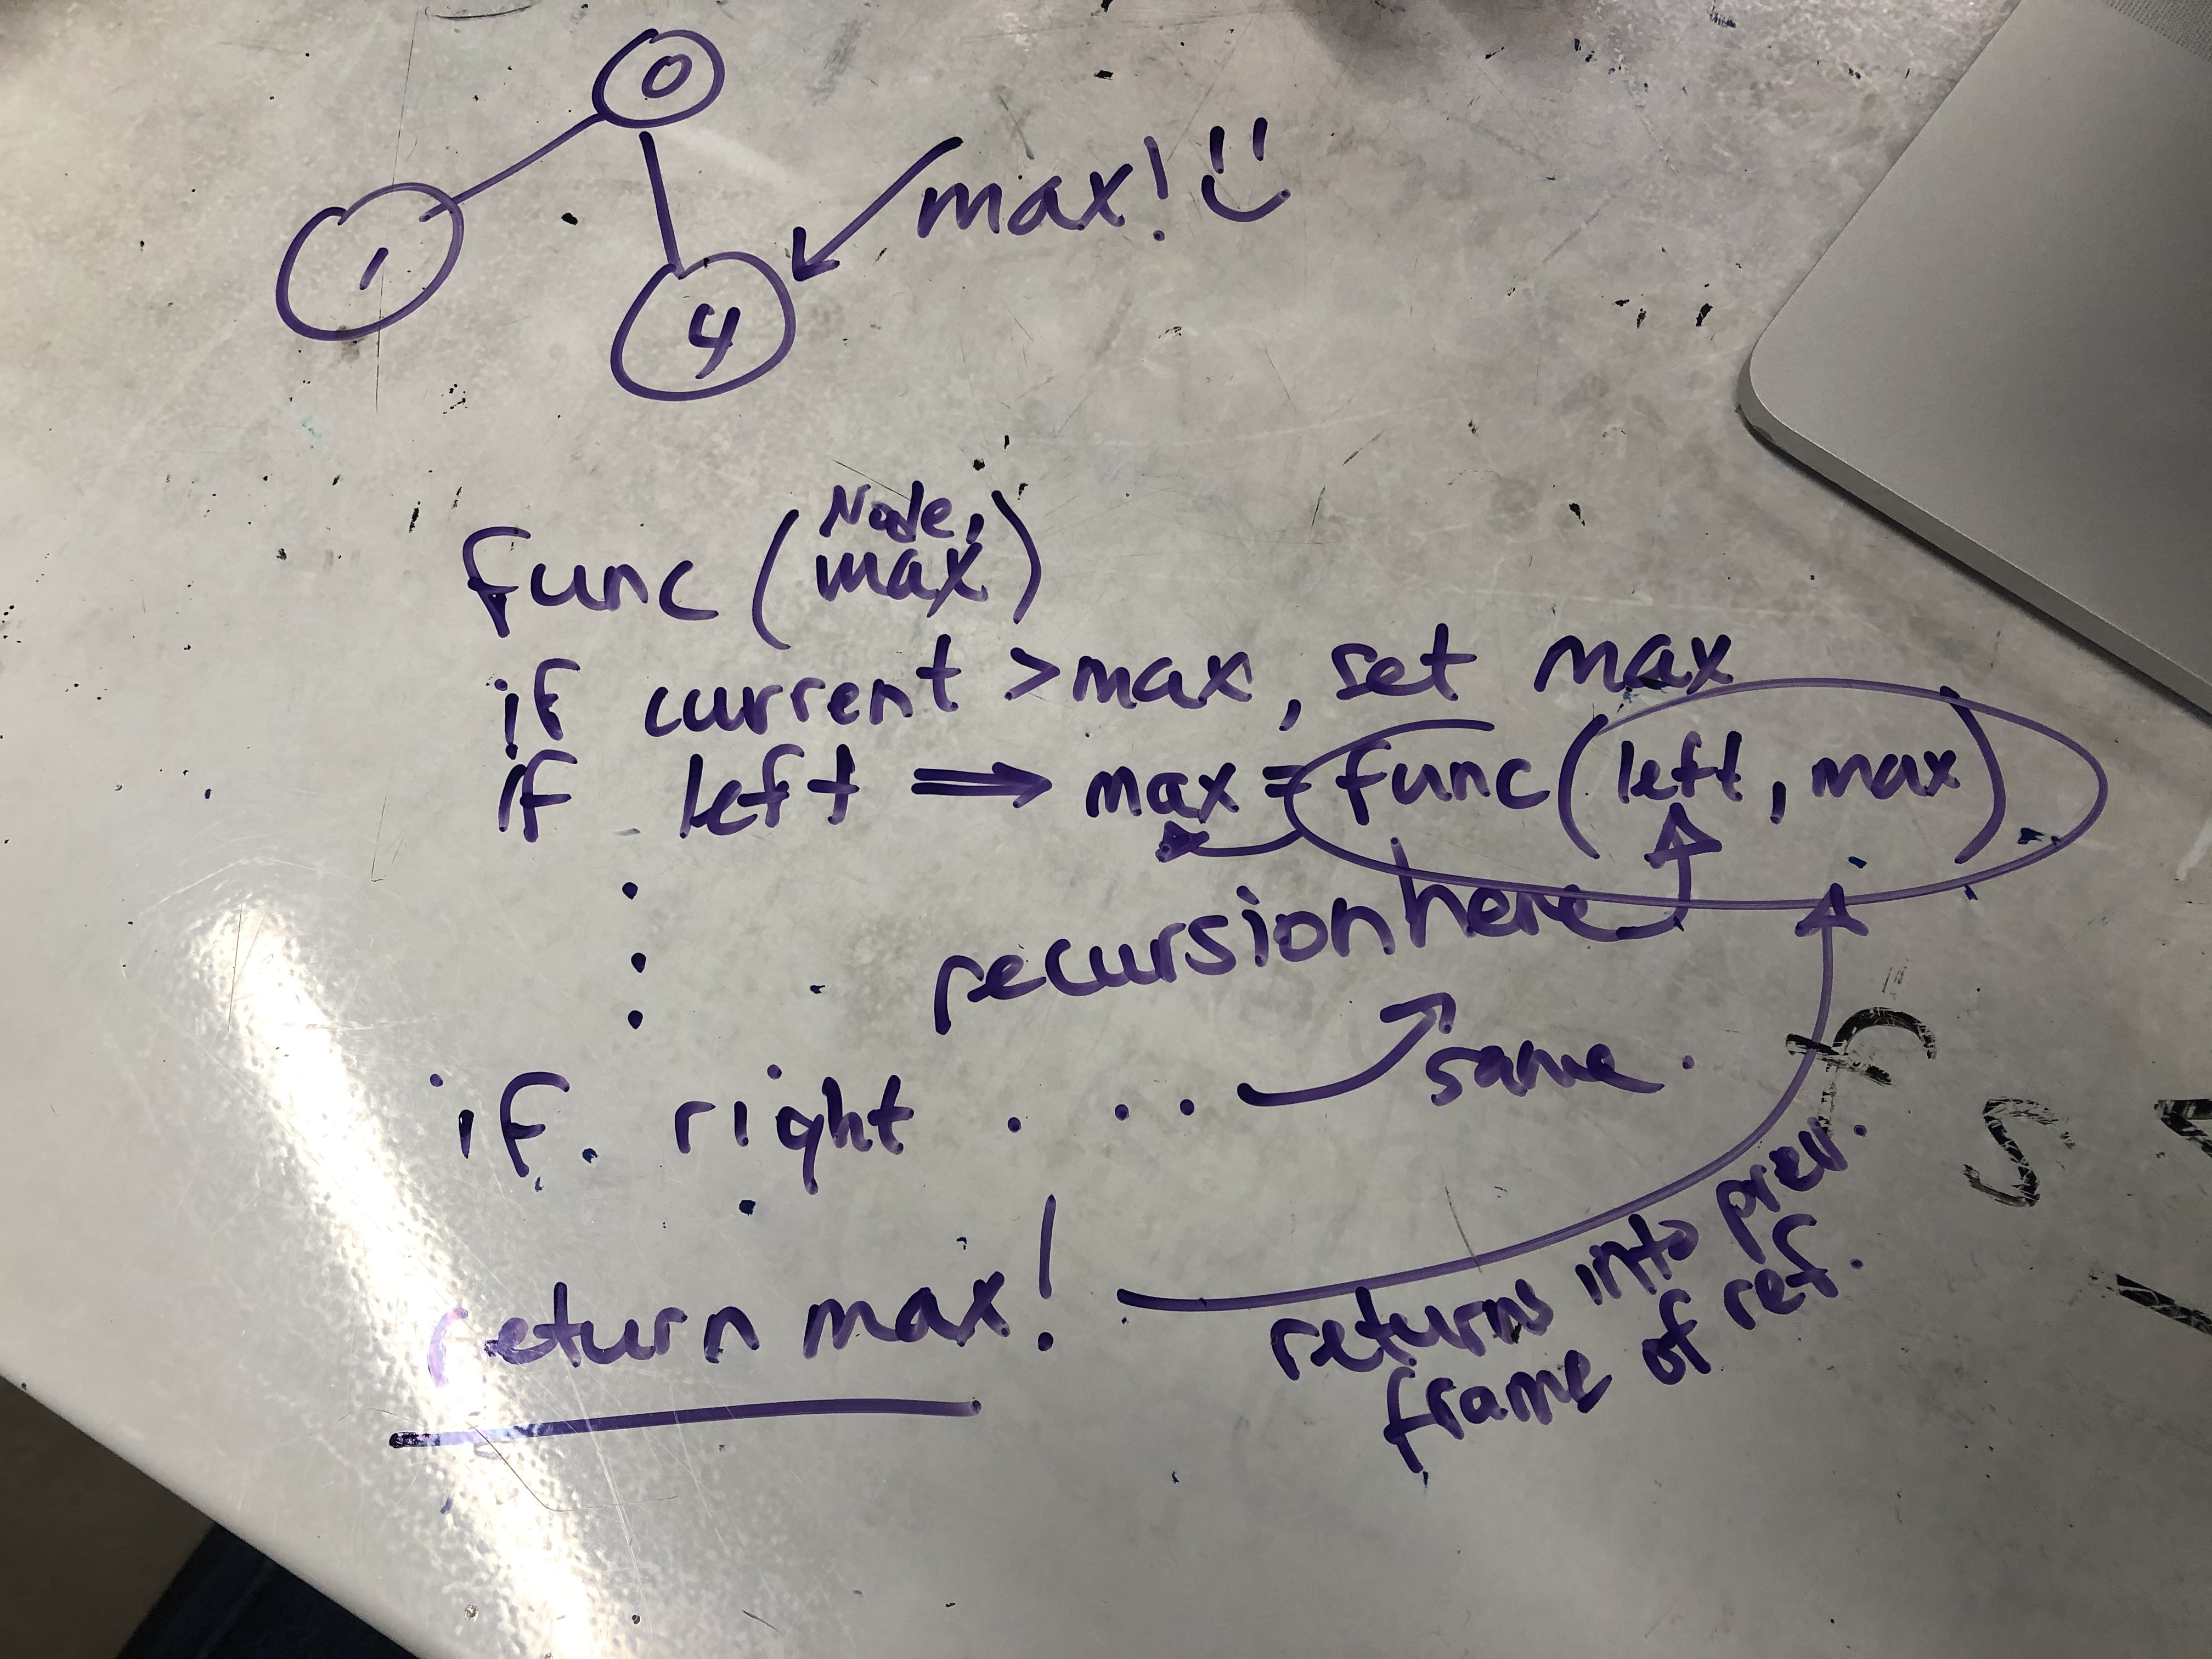 0
1
4
max!
func (Node, max)
if current > max, set max
if left ⇒ max = func(left, max)
recursion here
if right . . .
same.
return max!
returns into prev.
frame of ref.
f
S